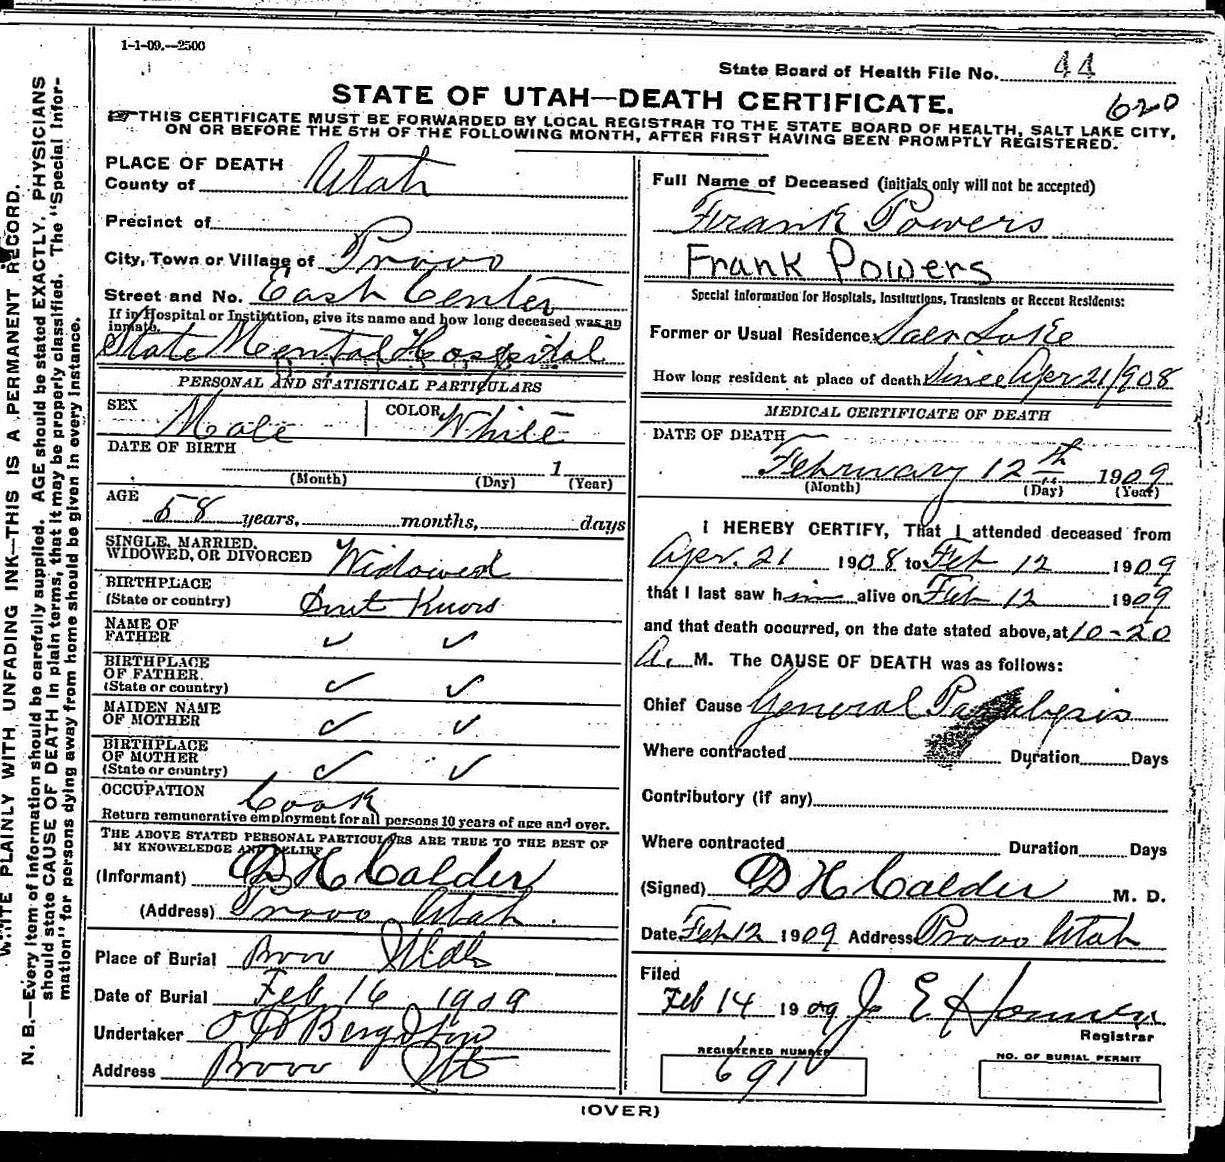 1-1-09.—2500
State Board of Health File No. 44
STATE OF UTAH—DEATH CERTIFICATE.
620
THIS CERTIFICATE MUST BE FORWARDED BY LOCAL REGISTRAR TO THE STATE BOARD OF HEALTH, SALT LAKE CITY,
ON OR BEFORE THE 5TH OF THE FOLLOWING MONTH, AFTER FIRST HAVING BEEN PROMPTLY REGISTERED.
PLACE OF DEATH
County of Utah
Precinct of
City, Town or Village of Provo
Street and No. East Center
If in Hospital or Institution, give its name and how long deceased was an
inmate.
State Mental Hospital
PERSONAL AND STATISTICAL PARTICULARS
SEX Male COLOR White
DATE OF BIRTH
1
(Month) (Day) (Year)
AGE
58 years, months, days
SINGLE, MARRIED,
WIDOWED, OR DIVORCED Widowed
BIRTHPLACE
(State or country) Dont Know
NAME OF
FATHER ✓ ✓
BIRTHPLACE
OF FATHER
(State or country) ✓ ✓
MAIDEN NAME
OF MOTHER ✓ ✓
BIRTHPLACE
OF MOTHER
(State or country) ✓ ✓
OCCUPATION Cook
Return remunerative employment for all persons 10 years of age and over.
THE ABOVE STATED PERSONAL PARTICULARS ARE TRUE TO THE BEST OF
MY KNOWLEDGE AND BELIEF
(Informant) D H Calder
(Address) Provo Utah.
Place of Burial Provo
Date of Burial Feb 16 1909
Undertaker O H Berg & Son
Address Provo Ut
Full Name of Deceased (initials only will not be accepted)
Frank Powers
Frank Powers
Special Information for Hospitals, Institutions, Transients or Recent Residents:
Former or Usual Residence Lake
How long resident at place of death Since Apr 21/908
MEDICAL CERTIFICATE OF DEATH
DATE OF DEATH
February 12th 1909
(Month) (Day) (Year)
I HEREBY CERTIFY, That I attended deceased from
Apr. 21 1908 to Feb 12 1909
that I last saw him alive on Feb 12 1909
and that death occurred, on the date stated above, at 10-20
A. M. The CAUSE OF DEATH was as follows:
Chief Cause General Paralysis
Where contracted Duration Days
Contributory (if any)
Where contracted Duration Days
(Signed) D H Calder M. D.
Date Feb 12 1909 Address Provo Utah
Filed
Feb 14 1909 J E
Registrar
REGISTERED NUMBER
691
NO. OF BURIAL PERMIT
(OVER)
WRITE PLAINLY WITH UNFADING INK—THIS IS A PERMANENT RECORD.
N. B.—Every item of information should be carefully supplied. AGE should be stated EXACTLY, PHYSICIANS
should state CAUSE OF DEATH in plain terms, that it may be properly classified. The "Special Infor-
mation" for persons dying away from home should be given in every instance.